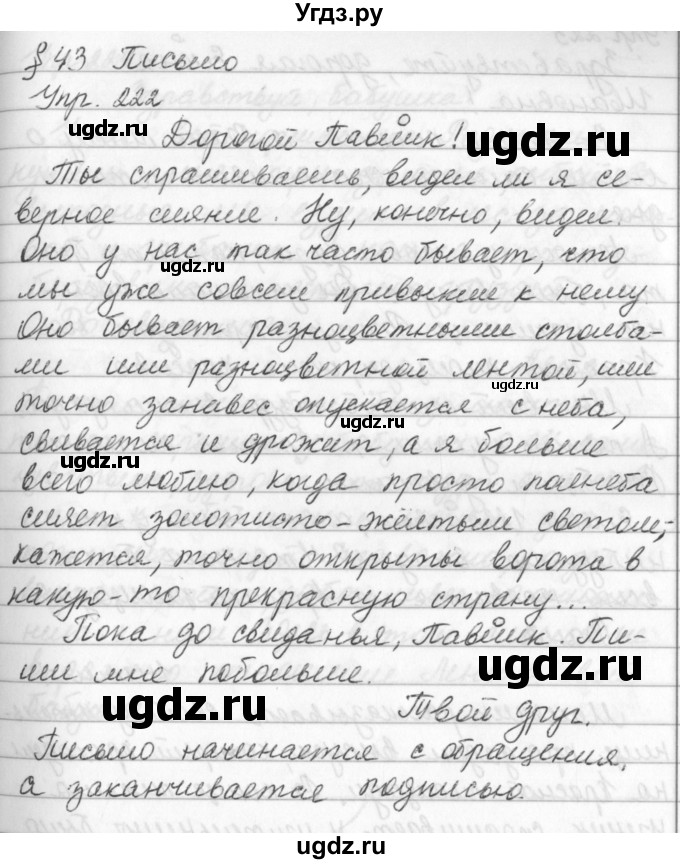 Угдз.ру
§ 43 Письмо
Упр. 222
ugdz.ru
ugdz.ru
Дорогой Павлик!
Ты спрашиваешь, видел ли я се-
верное сияние. Ну, конечно, видел.
ugdz.ru
Оно у нас так часто бывает, что
ugdz.ru
мы уже совсем привыкли к нему
Оно бывает разноцветными столба-
ми или разноцветной лентой, или
ugdz.ru
точно занавес опускается с неба,
свивается и дрожит, а я больше
ugdz.ru
всего люблю, когда просто полнеба
сияет золотисто-жёлтым светом,
кажется, точно открыты ворота в
какую-то прекрасную страну...
Пока до свиданья, Павлик. Пи-
ugdz.ru
ши мне побольше.
ugdz.ru
ugdz.ru
Твой друг.
Письмо начинается с обращения,
а заканчивается подписью.
ugdz.ru
ugdz.ru